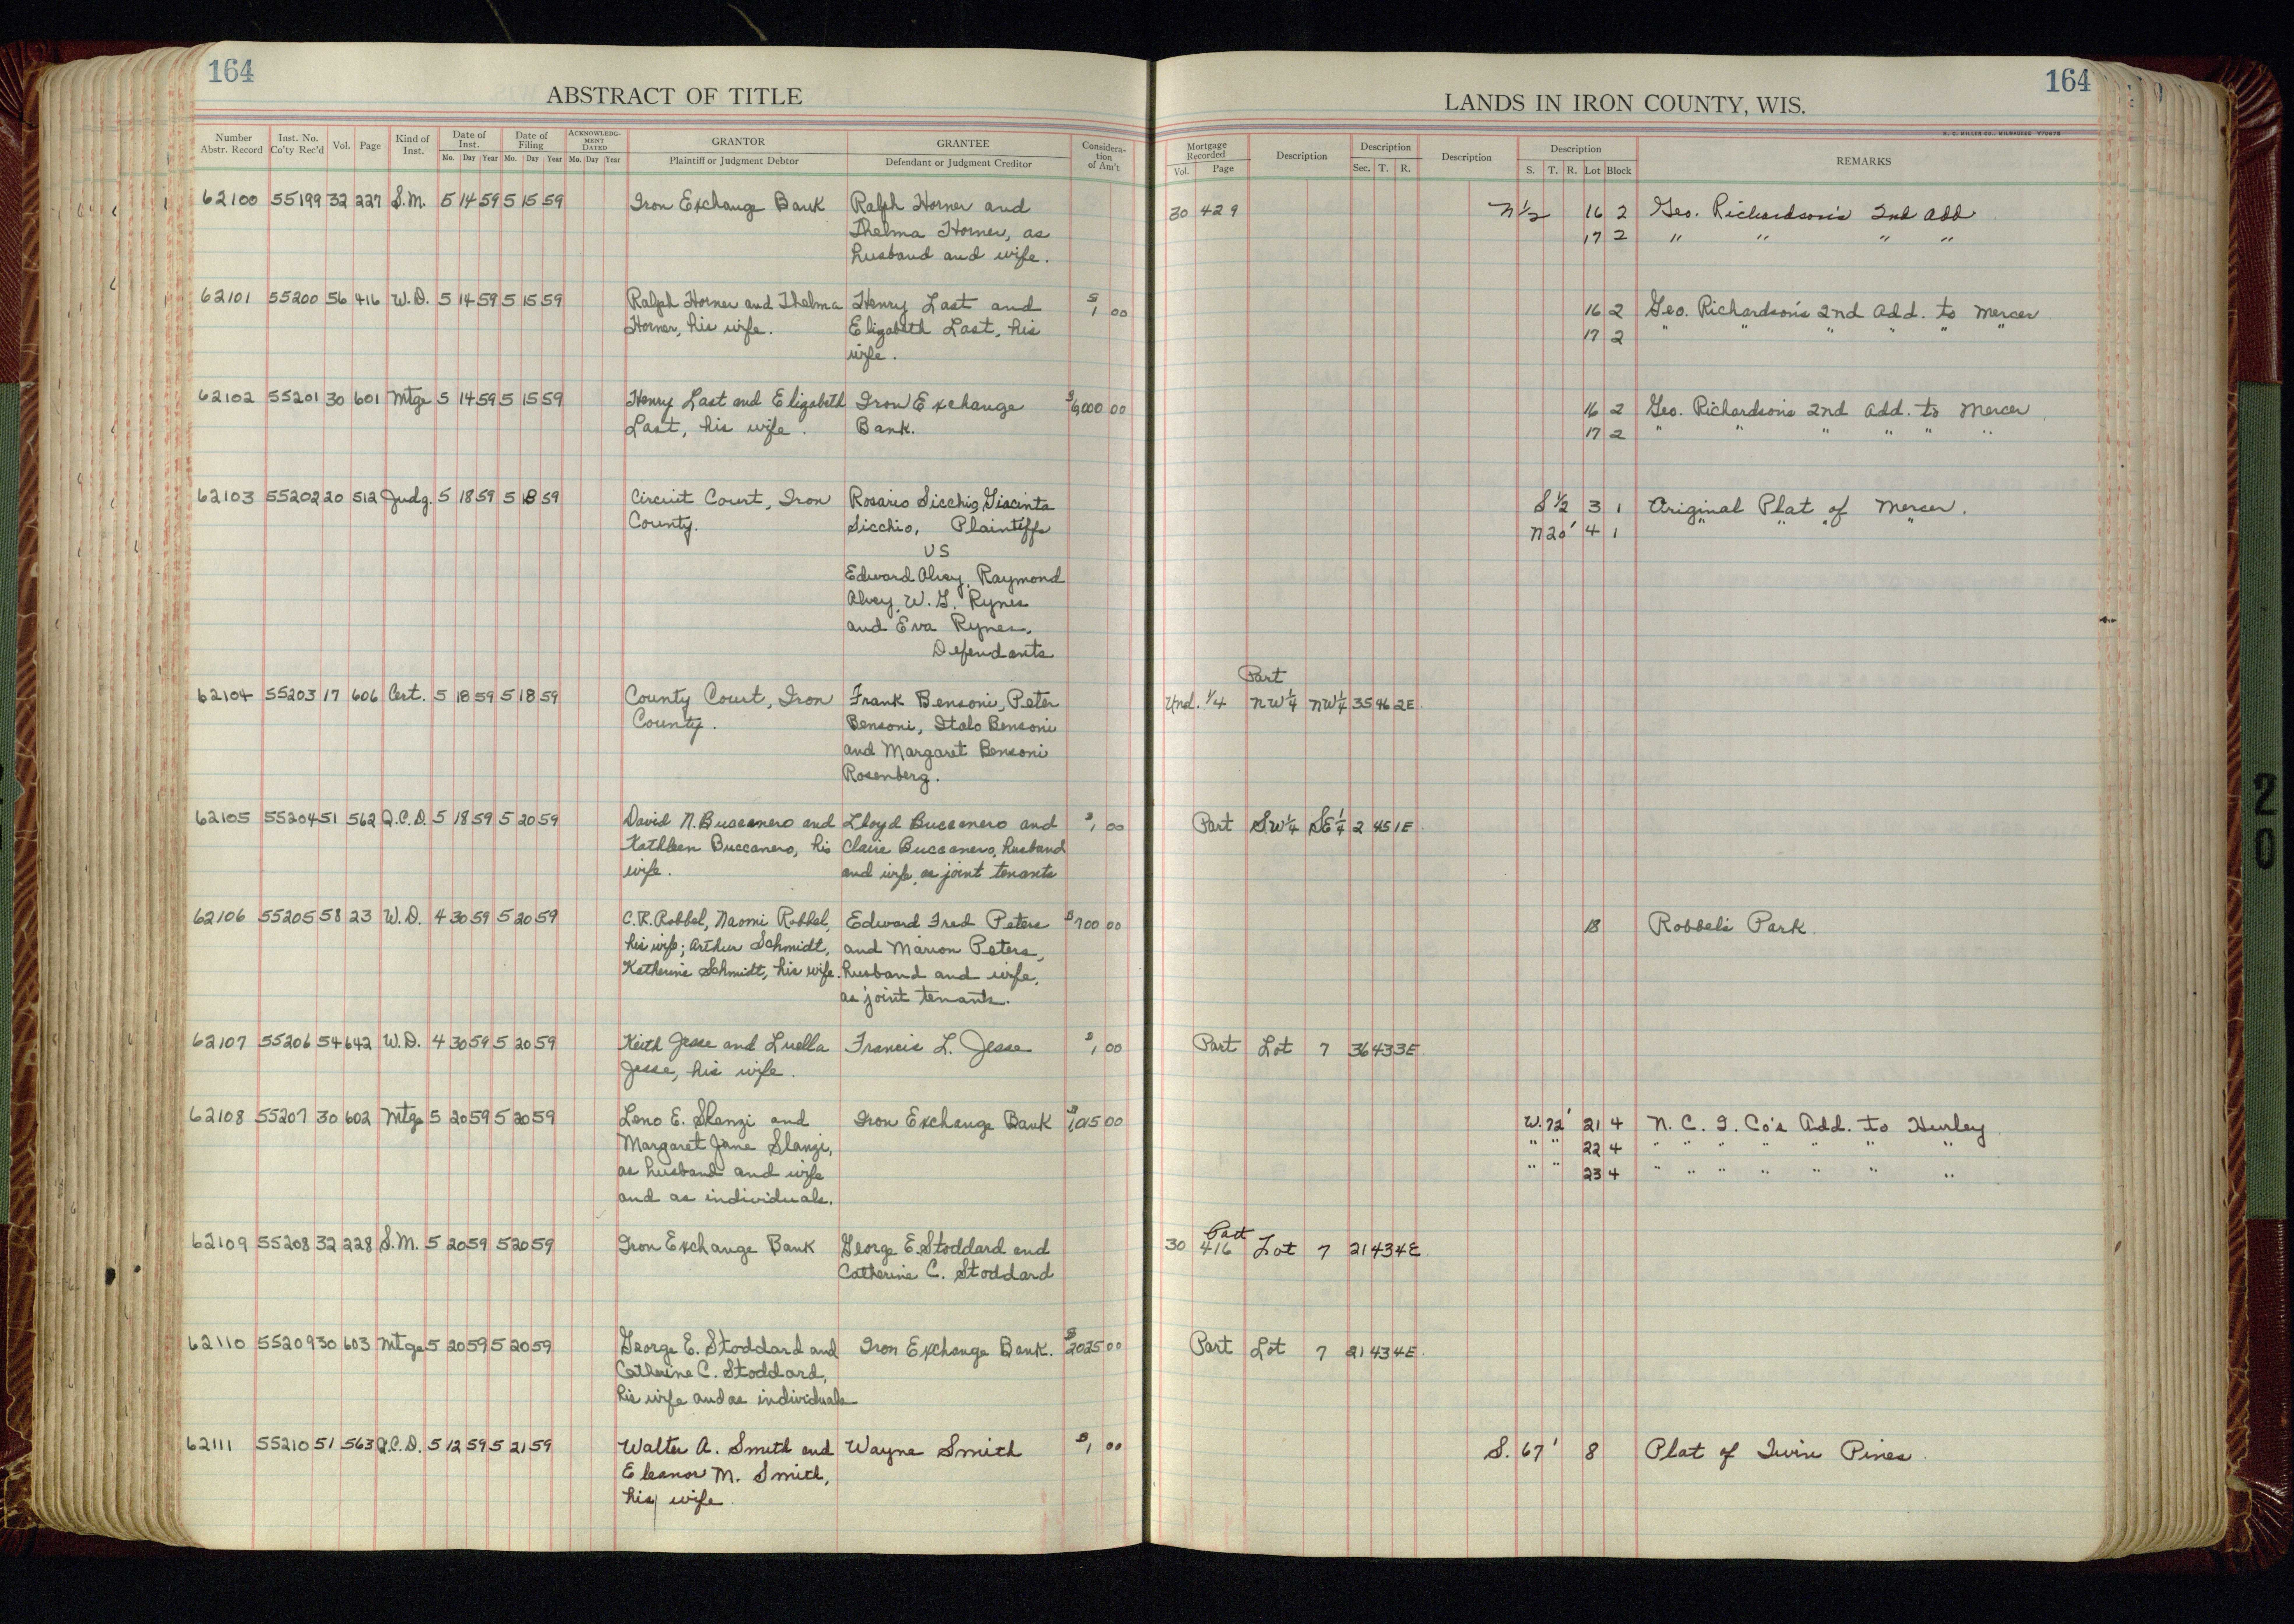 164
ABSTRACT OF TITLE
Number Abstr. Record
Inst. No. Co'ty Rec'd
Vol.
Page
Kind of Inst.
Date of Inst.
Mo. Day Year
Date of Filing
Mo. Day Year
ACKNOWLEDGMENT DATED
Mo. Day Year
GRANTOR
Plaintiff or Judgment Debtor
GRANTEE
Defendant or Judgment Creditor
Consideration of Am't
62100 55199 32 227 S.M. 5 14 59 5 15 59 Iron Exchange Bank Ralph Horner and
Thelma Horner, as
husband and wife.
62101 55200 56 416 W.D. 5 14 59 5 15 59 Ralph Horner and Thelma Henry Last and $1 00
Horner, his wife. Elizabeth Last, his
wife.
62102 55201 30 601 Mtge 5 14 59 5 15 59 Henry Last and Elizabeth Iron Exchange $6,000 00
Last, his wife. Bank.
62103 55202 20 512 Judg. 5 18 59 5 18 59 Circuit Court, Iron Rosario Sicchio, Giacinta
County. Sicchio, Plaintiffs
VS
Edward Alvey, Raymond
Alvey, W. G. Rynes
and Eva Rynes,
Defendants
62104 55203 17 606 Cert. 5 18 59 5 18 59 County Court, Iron Frank Bensoni, Peter
County. Bensoni, Italo Bensoni
and Margaret Bensoni
Rosenberg.
62105 55204 51 562 Q.C.D. 5 18 59 5 20 59 David N. Buccanero and Lloyd Buccanero and $1 00
Kathleen Buccanero, his Claire Buccanero, husband
wife. and wife, as joint tenants
62106 55205 58 23 W.D. 4 30 59 5 20 59 C.R. Robbel, Naomi Robbel, Edward Fred Peters $700 00
his wife; Arthur Schmidt, and Marion Peters,
Katherine Schmidt, his wife. husband and wife,
as joint tenants.
62107 55206 54 642 W.D. 4 30 59 5 20 59 Keith Jesse and Luella Francis L. Jesse $1 00
Jesse, his wife.
62108 55207 30 602 Mtge 5 20 59 5 20 59 Leno E. Slanzi and Iron Exchange Bank $1,015 00
Margaret Jane Slanzi,
as husband and wife
and as individuals.
62109 55208 32 228 S.M. 5 20 59 5 20 59 Iron Exchange Bank George E. Stoddard and
Catherine C. Stoddard
62110 55209 30 603 Mtge 5 20 59 5 20 59 George E. Stoddard and Iron Exchange Bank. $2025 00
Catherine C. Stoddard,
his wife and as individuals
62111 55210 51 563 Q.C.D. 5 12 59 5 21 59 Walter A. Smith and Wayne Smith $1 00
Eleanor M. Smith,
his wife
164
LANDS IN IRON COUNTY, WIS.
H. C. MILLER CO., MILWAUKEE
Mortgage Recorded
Vol. Page
Description
Description
Sec. T. R.
Description
Description
S. T. R. Lot Block
REMARKS
30 429 N 1/2 16 2 Geo. Richardson's 2nd Add
17 2 " " " "
16 2 Geo. Richardson's 2nd Add. to Mercer
17 2 " " " " " "
16 2 Geo. Richardson's 2nd Add. to Mercer
17 2 " " " " " "
S 1/2 3 1 Original Plat of Mercer.
N 20' 4 1 " " " "
Part
Und. 1/4 NW 1/4 NW 1/4 35 46 2E
Part SW 1/4 SE 1/4 2 45 1E
18 Robbel's Park
Part Lot 7 36 43 3E
W. 72' 21 4 N. C. I. Co's Add. to Hurley
" " 22 4 " " " " " " "
" " 23 4 " " " " " " "
Part
30 416 Lot 7 21 43 4E
Part Lot 7 21 43 4E
S. 67' 8 Plat of Twin Pines
20